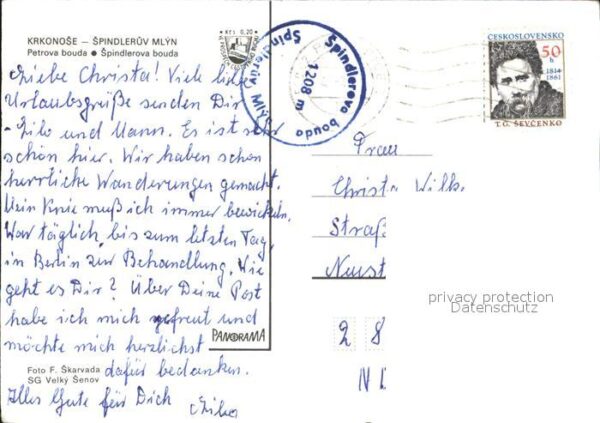 KRKONOŠE – ŠPINDLERŮV MLÝN
Petrova bouda ● Špindlerova bouda
Kčs 0,20
Liebe Christa! Viele liebe
Urlaubsgrüße senden Dir
und Mann. Es ist sehr
schön hier. Wir haben schon
herrliche Wanderungen gemacht.
Mein Knie muß ich immer bewickeln.
War täglich bis zum letzten Tag
in Berlin zur Behandlung. Wie
geht es Dir? Über Deine Post
habe ich mich gefreut und
möchte mich herzlichst
dafür bedanken.
Alles Gute für Dich
PANORAMA
Foto F. Škarvada
SG Velký Šenov
Špindlerova bouda
1208 m
Špindlerův Mlýn
ČESKOSLOVENSKO
50 h
1814
1861
T.G. ŠEVČENKO
Frau
Christa Wilk
Straß
Neust
privacy protection
Datenschutz
2 8